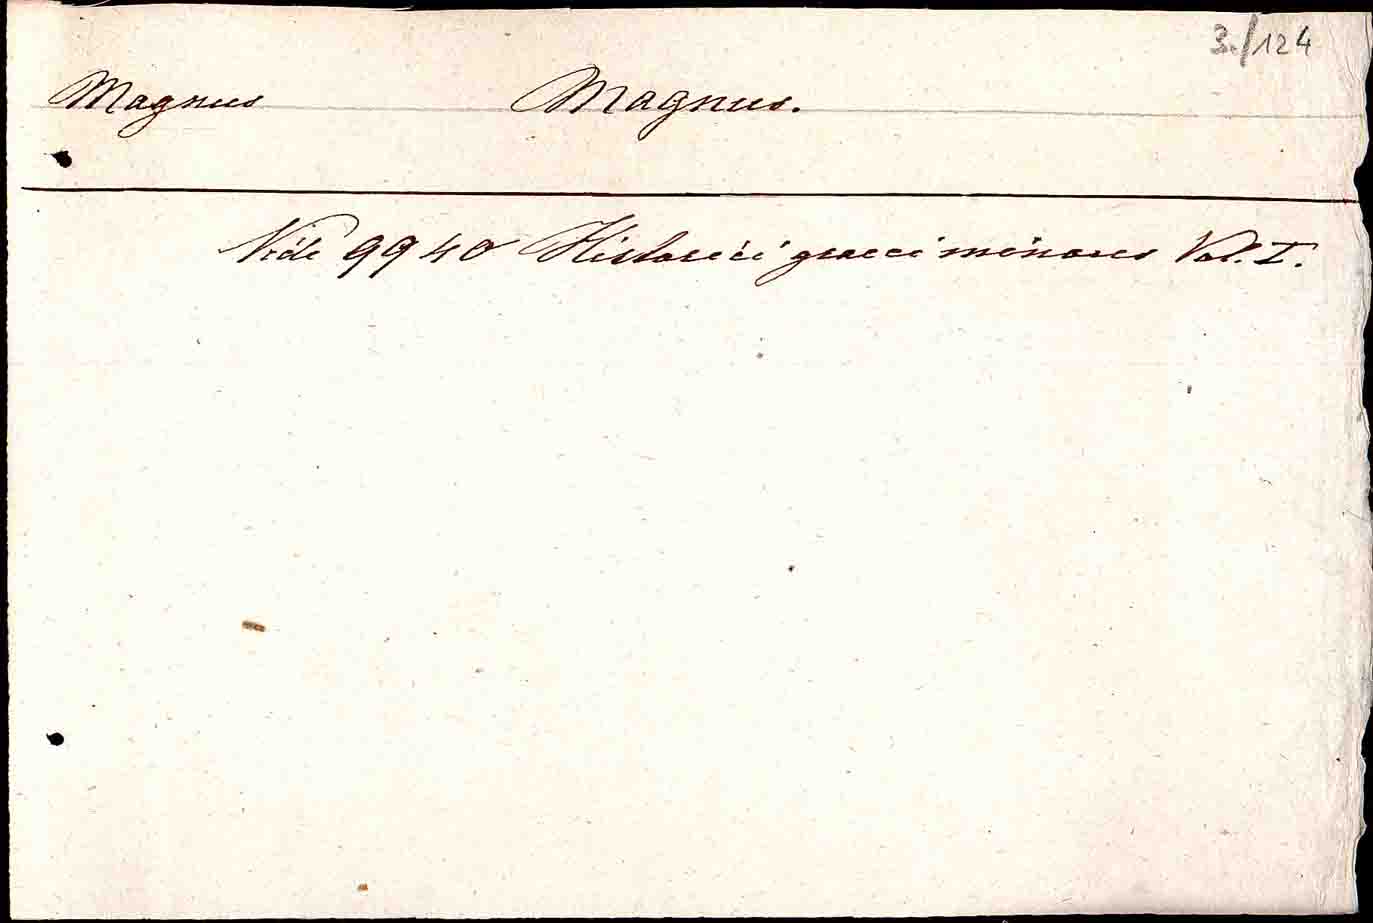 3./124
Magnus Magnus.
Vide 9940 Historici graeci minores Vol. I.